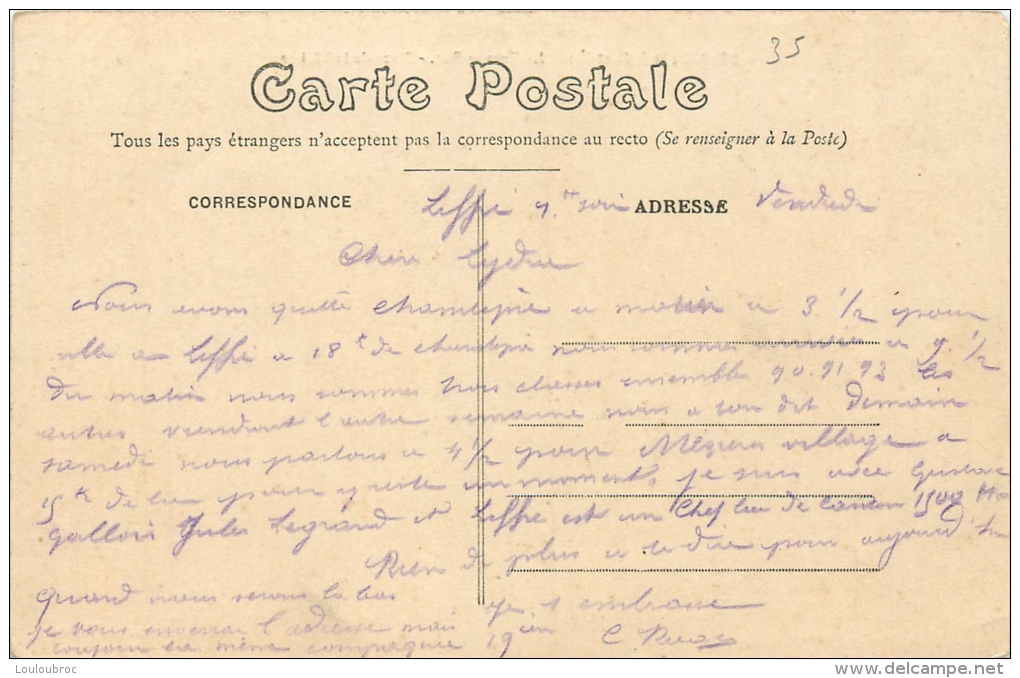 35
Carte Postale
Tous les pays étrangers n'acceptent pas la correspondance au recto (Se renseigner à la Poste)
CORRESPONDANCE
ADRESSE
Leffe soir Vendredi
Chère
Nous avons quitté a matin a 3 1/2 pour
a Leffe a 18 k de nous sommes a 9 1/2
du matin nous sommes trois classes ensemble 90.91 93 les
autres viendront l'autre semaine nous a ton dit Demain
samedi nous partons a 4 1/2 pour village a
15 k de la pour y un moment. je suis avec Gustave
Gallois Jules Legrand et Leffe est un Chef lieu de Canton 1500 H
Rien de plus a te dire pour aujourd'hui
Quand nous serons la bas je t embrasse
je vous l'adresse mais
toujour la même compagnie 19 C.
Louloubroc
www.delcampe.net